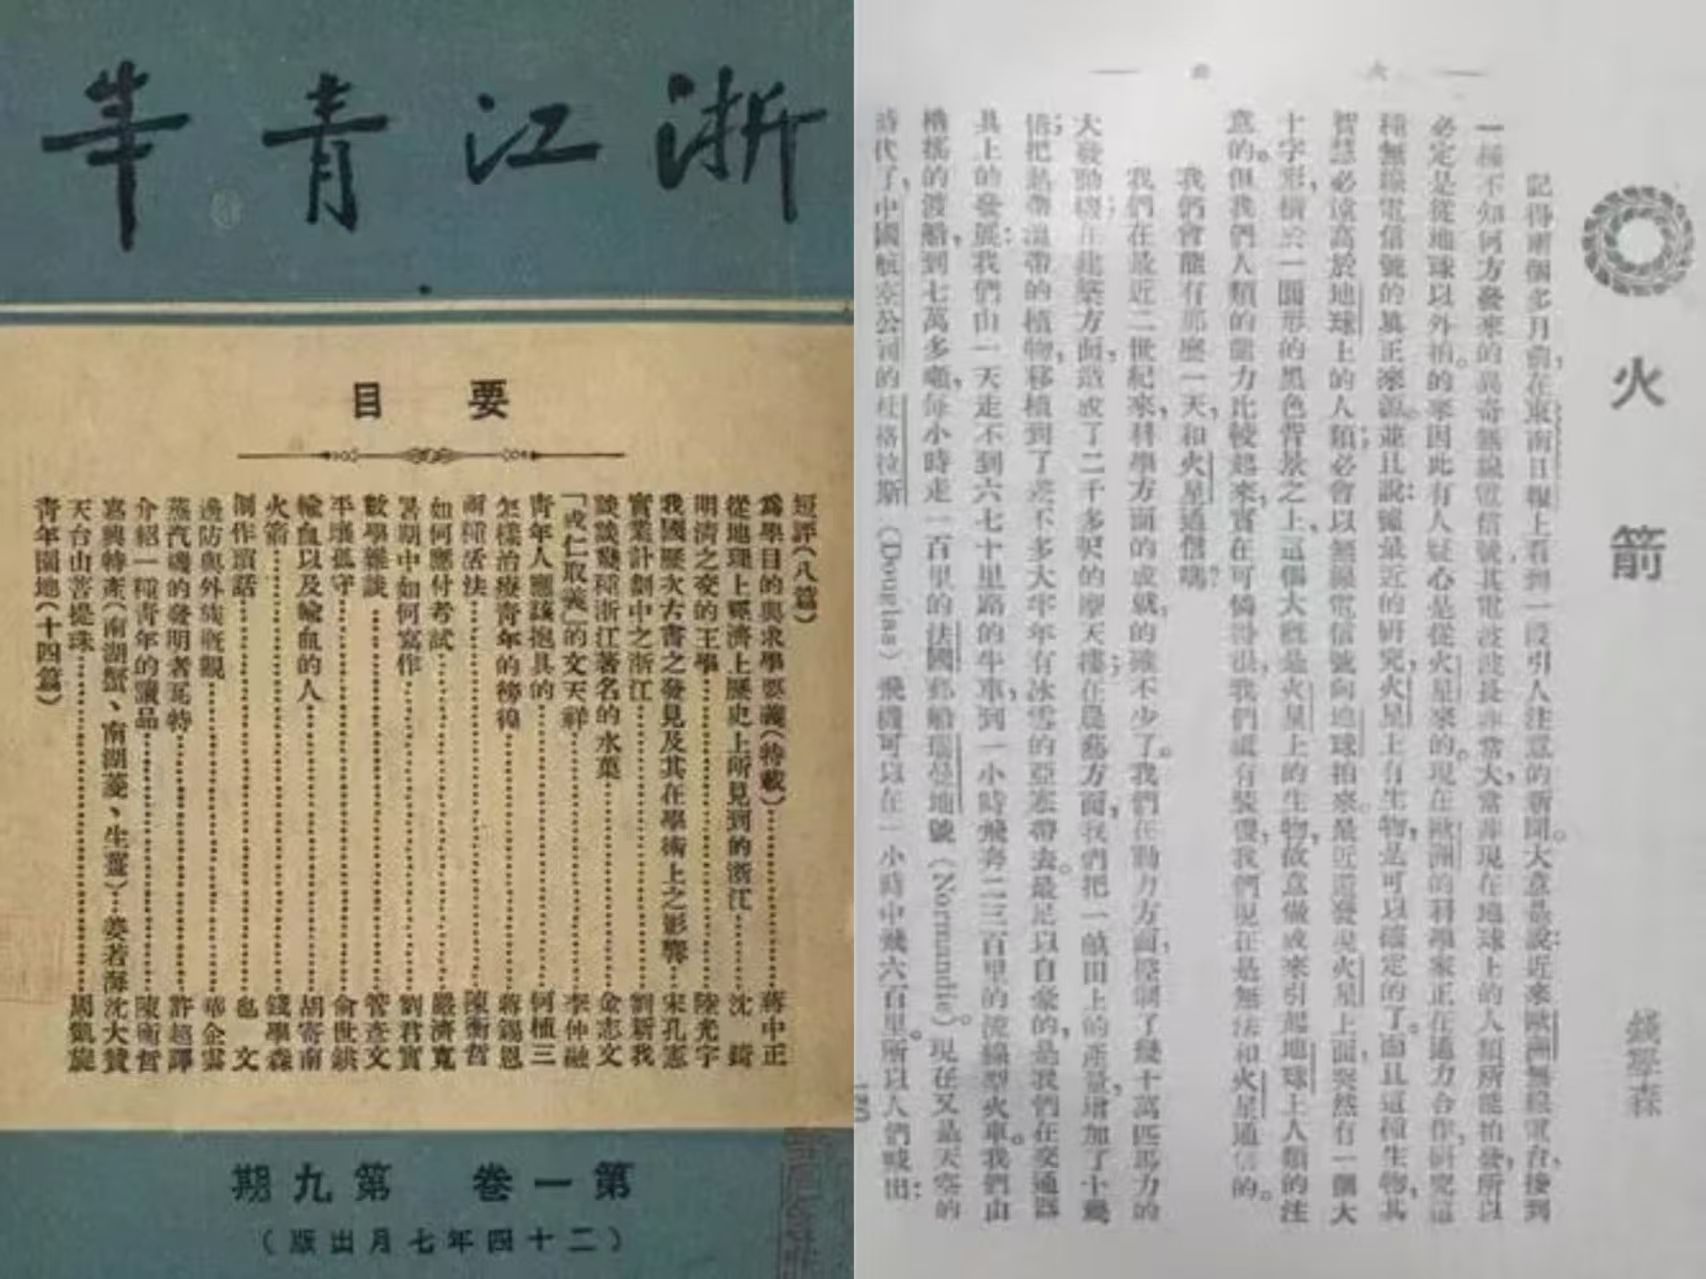 浙江青年
要目
短評（八篇）
為學目的與求學要義（特載）……蔣中正
從地理上經濟上歷史上所見到的浙江……沈
明清之交的王學……陸光宇
我國歷次古書之發見及其在學術上之影響…宋孔憲
實業計劃中之浙江……劉新我
談談幾種浙江著名的水菓……金志文
「成仁取義」的文天祥……李仲融
青年人應該抱具的……何植三
怎樣治療青年的徬徨……蔣錫恩
兩種活法……陳衡哲
如何應付考試……嚴濟寬
暑期中如何寫作……劉君實
數學雜談……管查文
平壤孤守……俞世鎮
輸血以及輸血的人……胡寄南
火箭……錢學森
制作瑣話……文
邊防與外族概觀……華企雲
蒸汽磯的發明者瓦特……許超譯
介紹一種青年的讀品……陳衡哲
嘉興特產（南湖蟹、南湖菱、生薑）…姜若海 沈大贊
天台山菩提珠……周凱旋
青年園地（十四篇）
第一卷 第九期
（二十四年七月出版）
火箭
火箭
錢學森
記得兩個多月前，在東南日報上看到一段引人注意的新聞。大意是說：近來歐洲無線電台，接到
一種不知何方發來的異奇無線電信號，其電波波長非常大，常非現在地球上的人類所能拍發，所以
必定是從地球以外拍的來。因此有人疑心是從火星來的。現在歐洲的科學家正在通力合作，研究這
種無線電信號的真正來源。並且說：據最近的研究，火星上有生物，是可以確定的了。而且這種生物，其
智慧必遠高於地球上的人類；必會以無線電信號向地球拍來。最近還發現火星上面，突然有一個大
十字形，橫於一圓形的黑色背景之上，這個大概是火星上的生物，故意做成來引起地球上人類的注
意的。但我們人類的能力比較起來，實在可憐得很，我們還有裝置，我們現在是無法和火星通信的。
我們會能有那麼一天，和火星通信嗎？
我們在最近二世紀來，科學方面的成就，的確不少了。我們在動力方面，控制了幾十萬匹馬力的
大發動機；在建築方面，造成了二千多呎的摩天樓；在農藝方面，我們把一畝田上的產量，增加了十幾
倍；把熱帶溫帶的植物，移植到了差不多大半年有冰雪的亞寒帶去。最足以自豪的，是我們在交通器
具上的發展：我們由一天走不到六七十里路的牛車，到一小時飛奔二三百里的流線型火車。我們由
橈搖的渡船，到七萬多噸，每小時走一百里的法國郵船瑙曼地號（Normandie）。現在又是天空的
時代了，中國航空公司的杜格拉斯（Douglas）飛機可以在一小時中飛六百里。所以人們喊出：